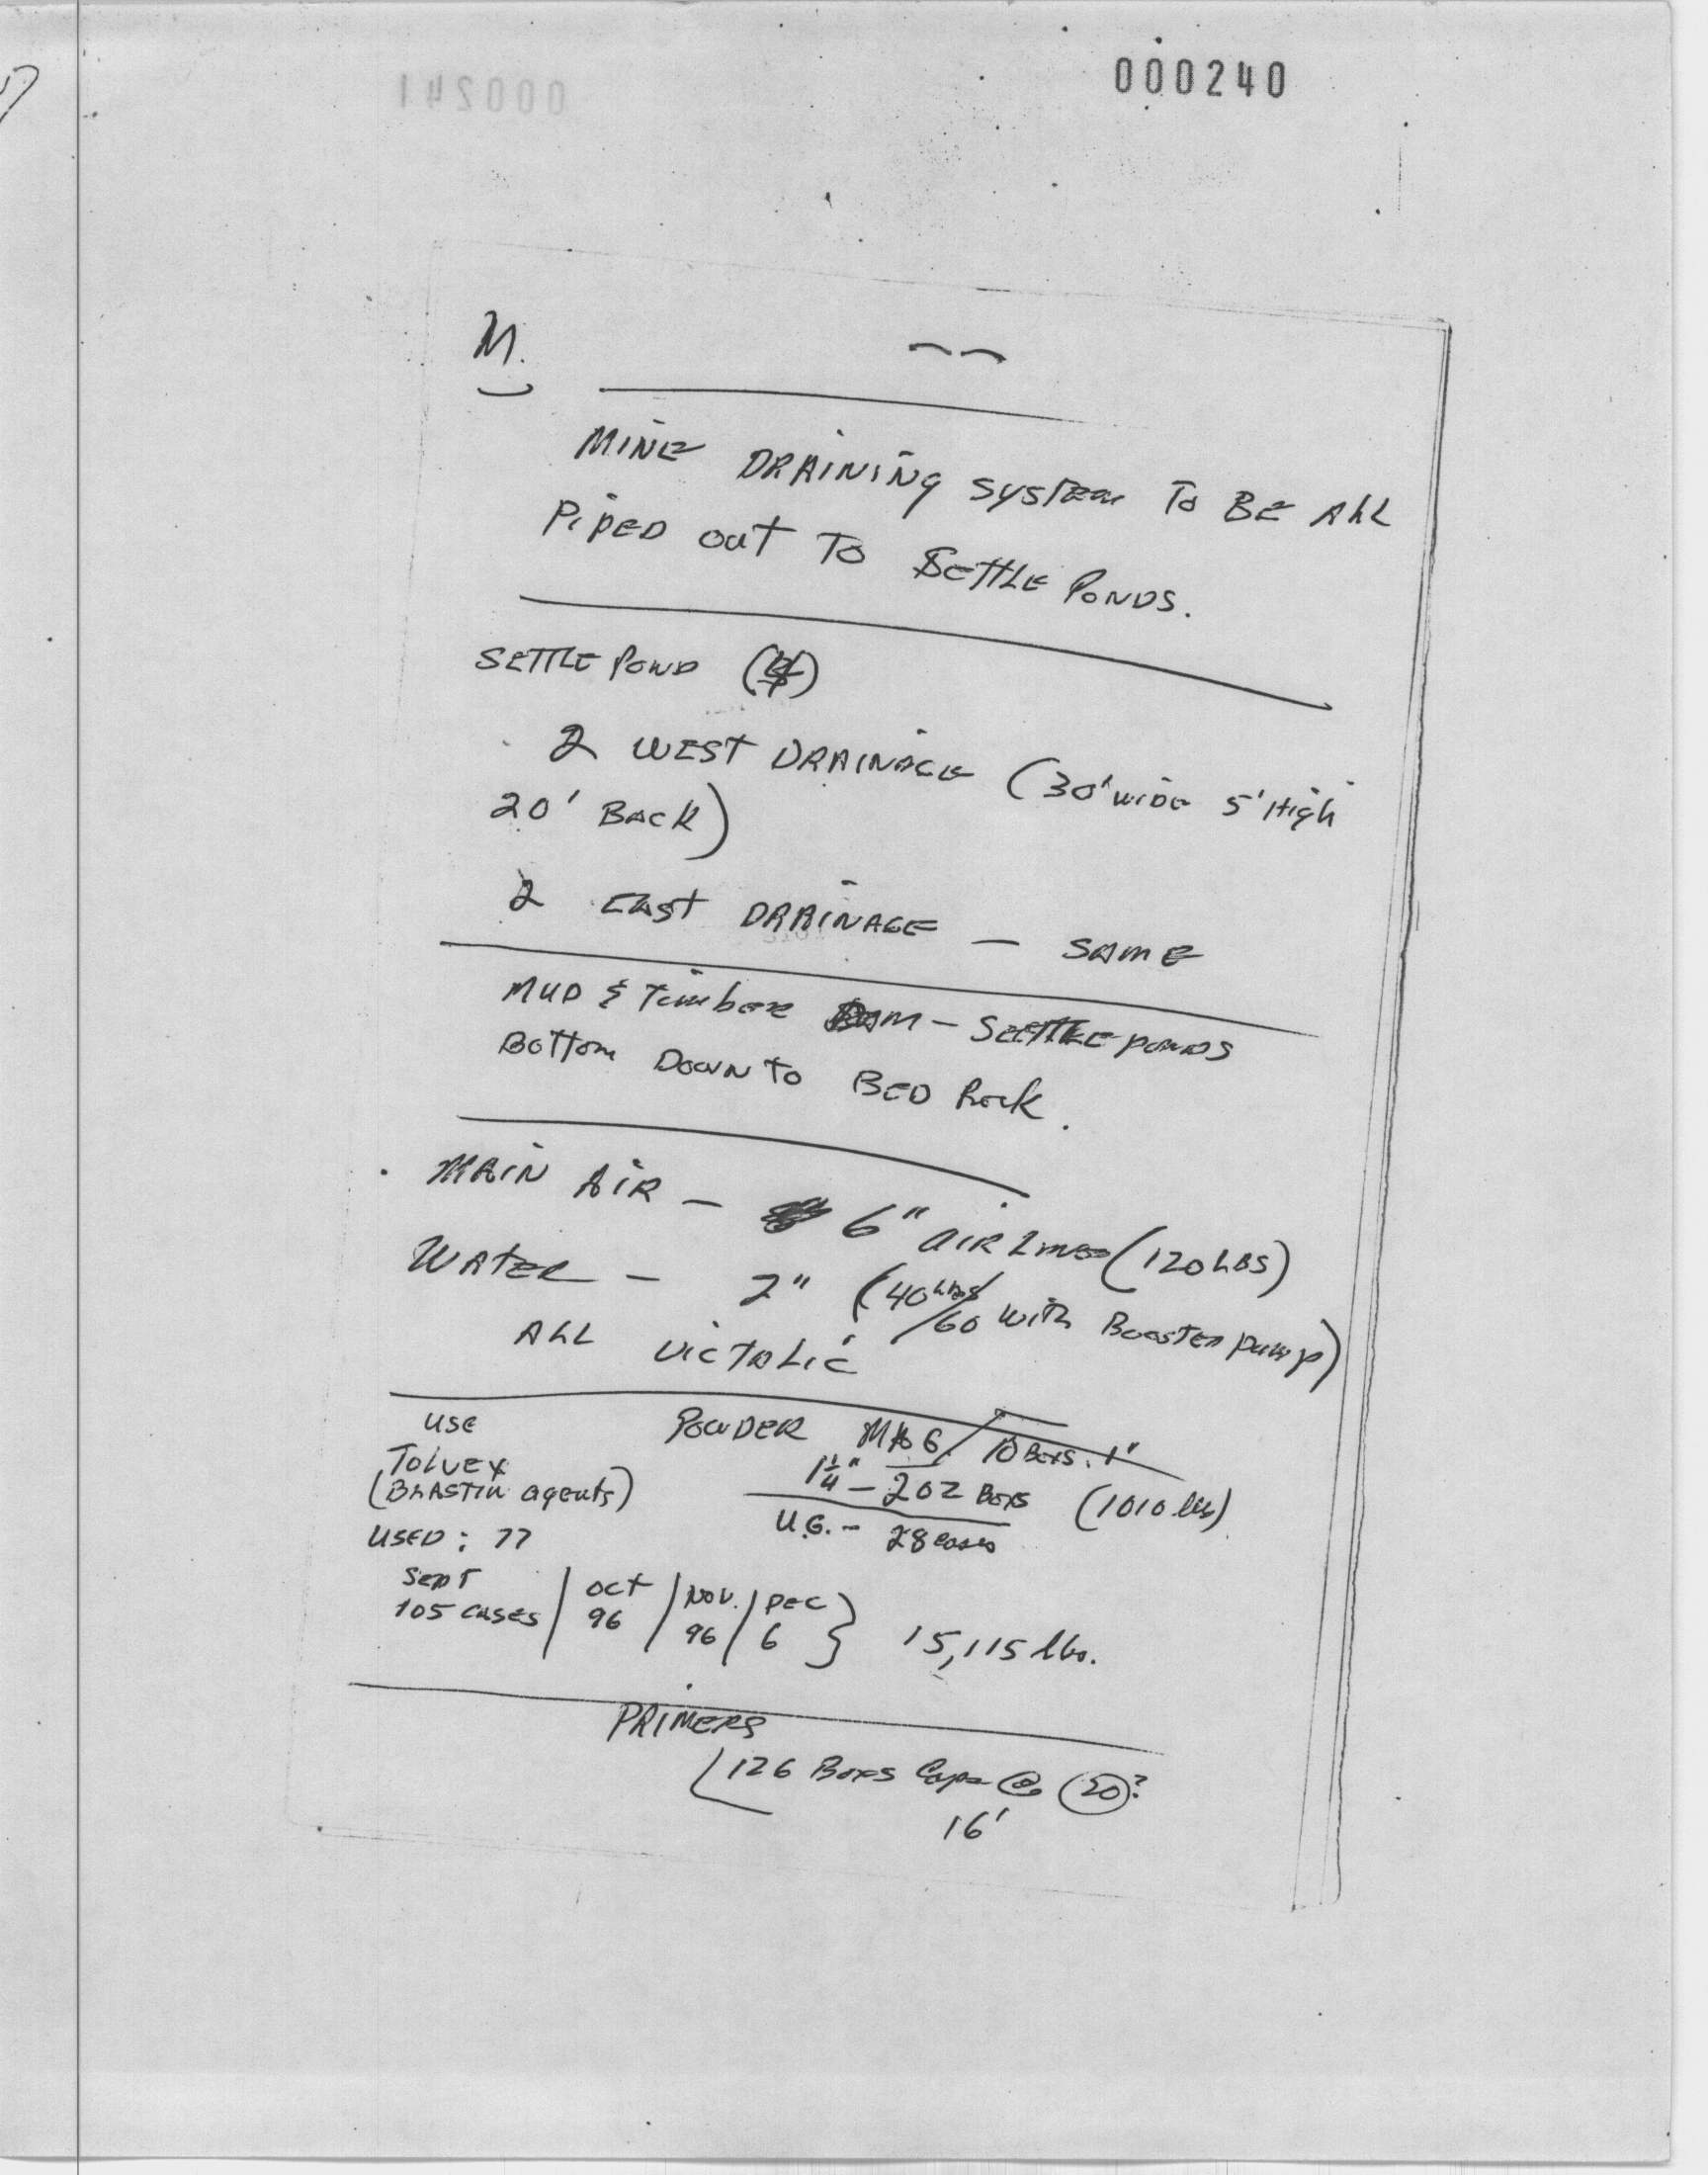 000240
M.
MINE DRAINING SYSTEM TO BE ALL
PIPED OUT TO SETTLE PONDS.
SETTLE POND (4)
2 WEST DRAINAGE (30' WIDE 5' High
20' BACK)
2 EAST DRAINAGE — SAME
MUD & Timber DAM — SETTLE PONDS
Bottom DOWN TO BED Rock.
MAIN AIR — 6" AIR Lines (120 LBS)
WATER — 2" (40 LBS/60 with Booster pump)
ALL VICTOLIC
USE POWDER MAG / 10 Boxs. 1"
TOLVEX 1 1/4" — 202 Boxs (1010 lbs)
(BLASTIN agents) U.G. — 28 cases
USED : 77
SEPT / OCT / NOV. / DEC
105 CASES / 96 / 96 / 6 } 15,115 lbs.
PRIMERS
126 Boxs Caps @ 50?
16'